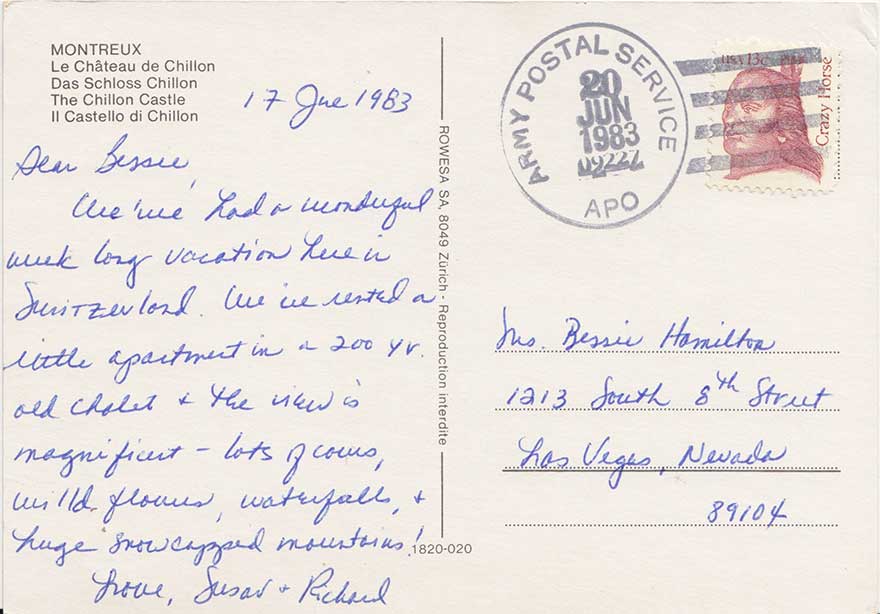 MONTREUX
Le Château de Chillon
Das Schloss Chillon
The Chillon Castle
Il Castello di Chillon
17 Jue 1983
Dear Bessie,
We've had a wonderful
week long vacation here in
Switzerland. We've rented a
little apartment in a 200 yr.
old chalet + the view is
magnificent – lots of cows,
wild flowers, waterfalls, +
huge snowcapped mountains!
Love, Susan + Richard
1820-020
ROWESA SA, 8049 Zürich - Reproduction interdite
ARMY POSTAL SERVICE
20
JUN
1983
09222
APO
USA 13c
Crazy Horse
Ms. Bessie Hamilton
1213 South 8th Street
Las Vegas, Nevada
89104